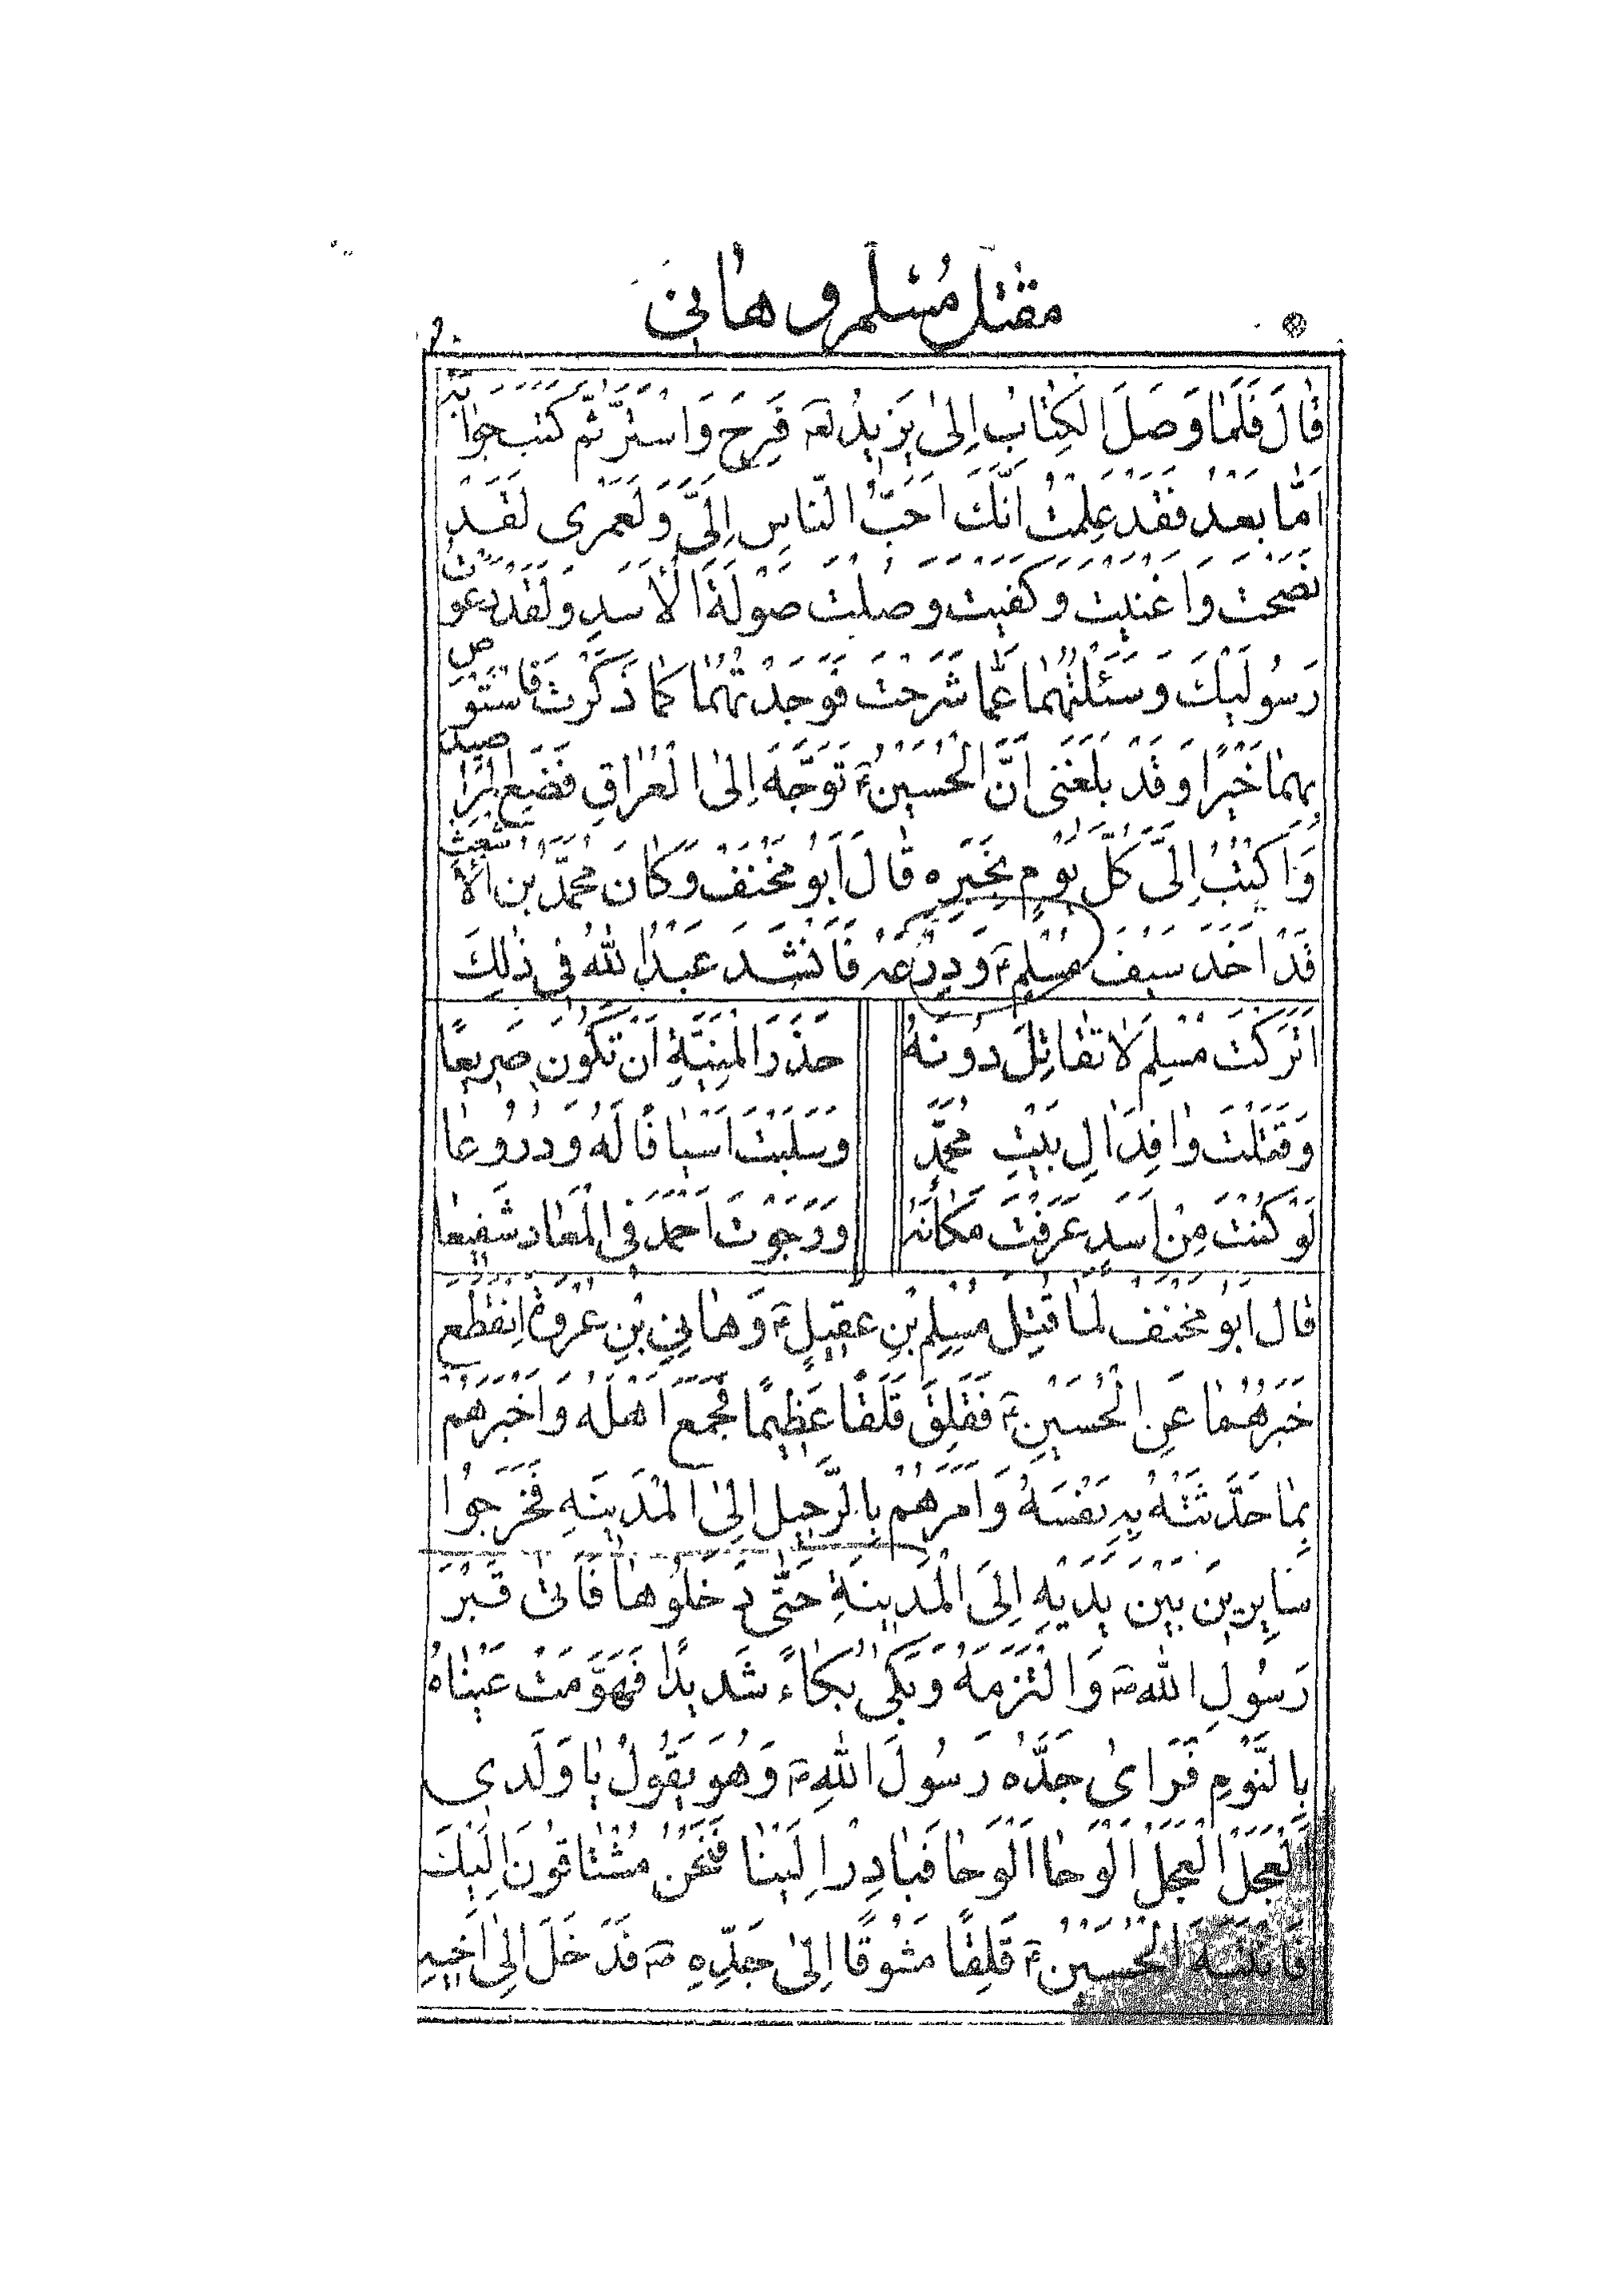 مقتل مُسْلم و هٰانی
قٰالَ فَلَمّٰا وَصَلَ الْكِتٰابُ اِلیٰ يَزيدُ لعَ فَرِحَ وَ اسْتَرَّ ثُمَّ كَتَبَ جَوٰابَهُ
اَمّٰا بَعْدُ فَقَدْ عَلِمْتُ اَنَّكَ اَحَبُّ النّاسِ اِلَیَّ وَ لَعَمْری لَقَدْ
نَصَحْتَ وَ اَغْنَيْتَ وَ كَفَيْتَ وَ صُلْتَ صَوْلَةَ الْأَسَدِ وَ لَقَدْ دَعَوْتُ
رَسُولَيْكَ وَ سَئَلْتُهُمٰا عَمّٰا شَرَحْتَ فَوَجَدْتُهُمٰا كَمٰا ذَكَرْتَ فَاسْتَوْصِ
بِهِمٰا خَيْرًا وَ قَدْ بَلَغَنی اَنَّ الْحُسَيْنَ ع تَوَجَّهَ اِلیَ الْعُرٰاقِ فَضَيِّعِ الْمَرٰاصِيدَ
وَ اكْتُبْ اِلَیَّ كُلَّ يَوْمٍ بِخَبَرِه قٰالَ اَبُو مِخْنَفْ وَ كٰانَ مُحَمَّدُ بْنُ الْأَشْعَثِ
قَدْ اَخَذَ سَيْفَ مُسْلِمٍ ع وَ دِرْعَهُ فَاَنْشَدَ عَبْدُ اللهِ فی ذٰلِكَ
اَتَرَكْتَ مُسْلِمَ لاٰ تُقٰاتِلَ دُونَهُ حَذَرَ الْمَنِيَّةِ اَنْ تَكُونَ صَريعًا
وَ قَتَلْتَ وٰافِدَ اٰلِ بَيْتِ مُحَمَّدٍ وَ سَلَبْتَ اَسْيٰافًا لَهُ وَ دُرُوعٰا
لَوْ كُنْتَ مِنْ اَسَدٍ عَرَفْتَ مَكٰانَهُ وَ رَجَوْتَ اَحْمَدَ فِی الْمَعٰادِ شَفيعٰا
قٰالَ اَبُو مِخْنَفْ لَمّٰا قُتِلَ مُسْلِمِ بْنِ عَقيلٍ ع وَ هٰانِی بْنِ عُرْوَةَ اِنْقَطَعَ
خَبَرُهُمٰا عَنِ الْحُسَيْنِ ع فَقَلِقَ قَلَقًا عَظيمًا فَجَمَعَ اَهْلَهُ وَ اَخْبَرَهُمْ
بِمٰا حَدَّثَتْهُ بِهِ نَفْسَهُ وَ اَمَرَهُمْ بِالرَّحيلِ اِلیَ الْمَدينَهِ فَخَرَجُوا
سٰايِرينَ بَيْنَ يَدَيْهِ اِلَی الْمَدينَةِ حَتّٰی دَخَلُوهٰا فَاَتیٰ قَبْرَ
رَسُولِ اللهِ ص وَ الْتَزَمَهُ وَ بَكیٰ بُكٰاءً شَديدًا فَهَوَّمَتْ عَيْنٰاهُ
بِالنَّوْمِ فَرَاَیٰ جَدَّهُ رَسُولَ اللهِ ص وَ هُوَ يَقُولُ يٰا وَلَدی
اَلْعَجَلَ الْعَجَلَ اَلْوَحٰا اَلْوَحٰا فَبٰادِرْ اِلَيْنٰا فَنَحْنُ مُشْتٰاقُونَ اِلَيْكَ
فَانْتَبَهَ الْحُسَيْنُ ع قَلِقًا مَشُوقًا اِلیٰ جَدِّهِ ص فَدَخَلَ اِلیٰ اَخيهِ